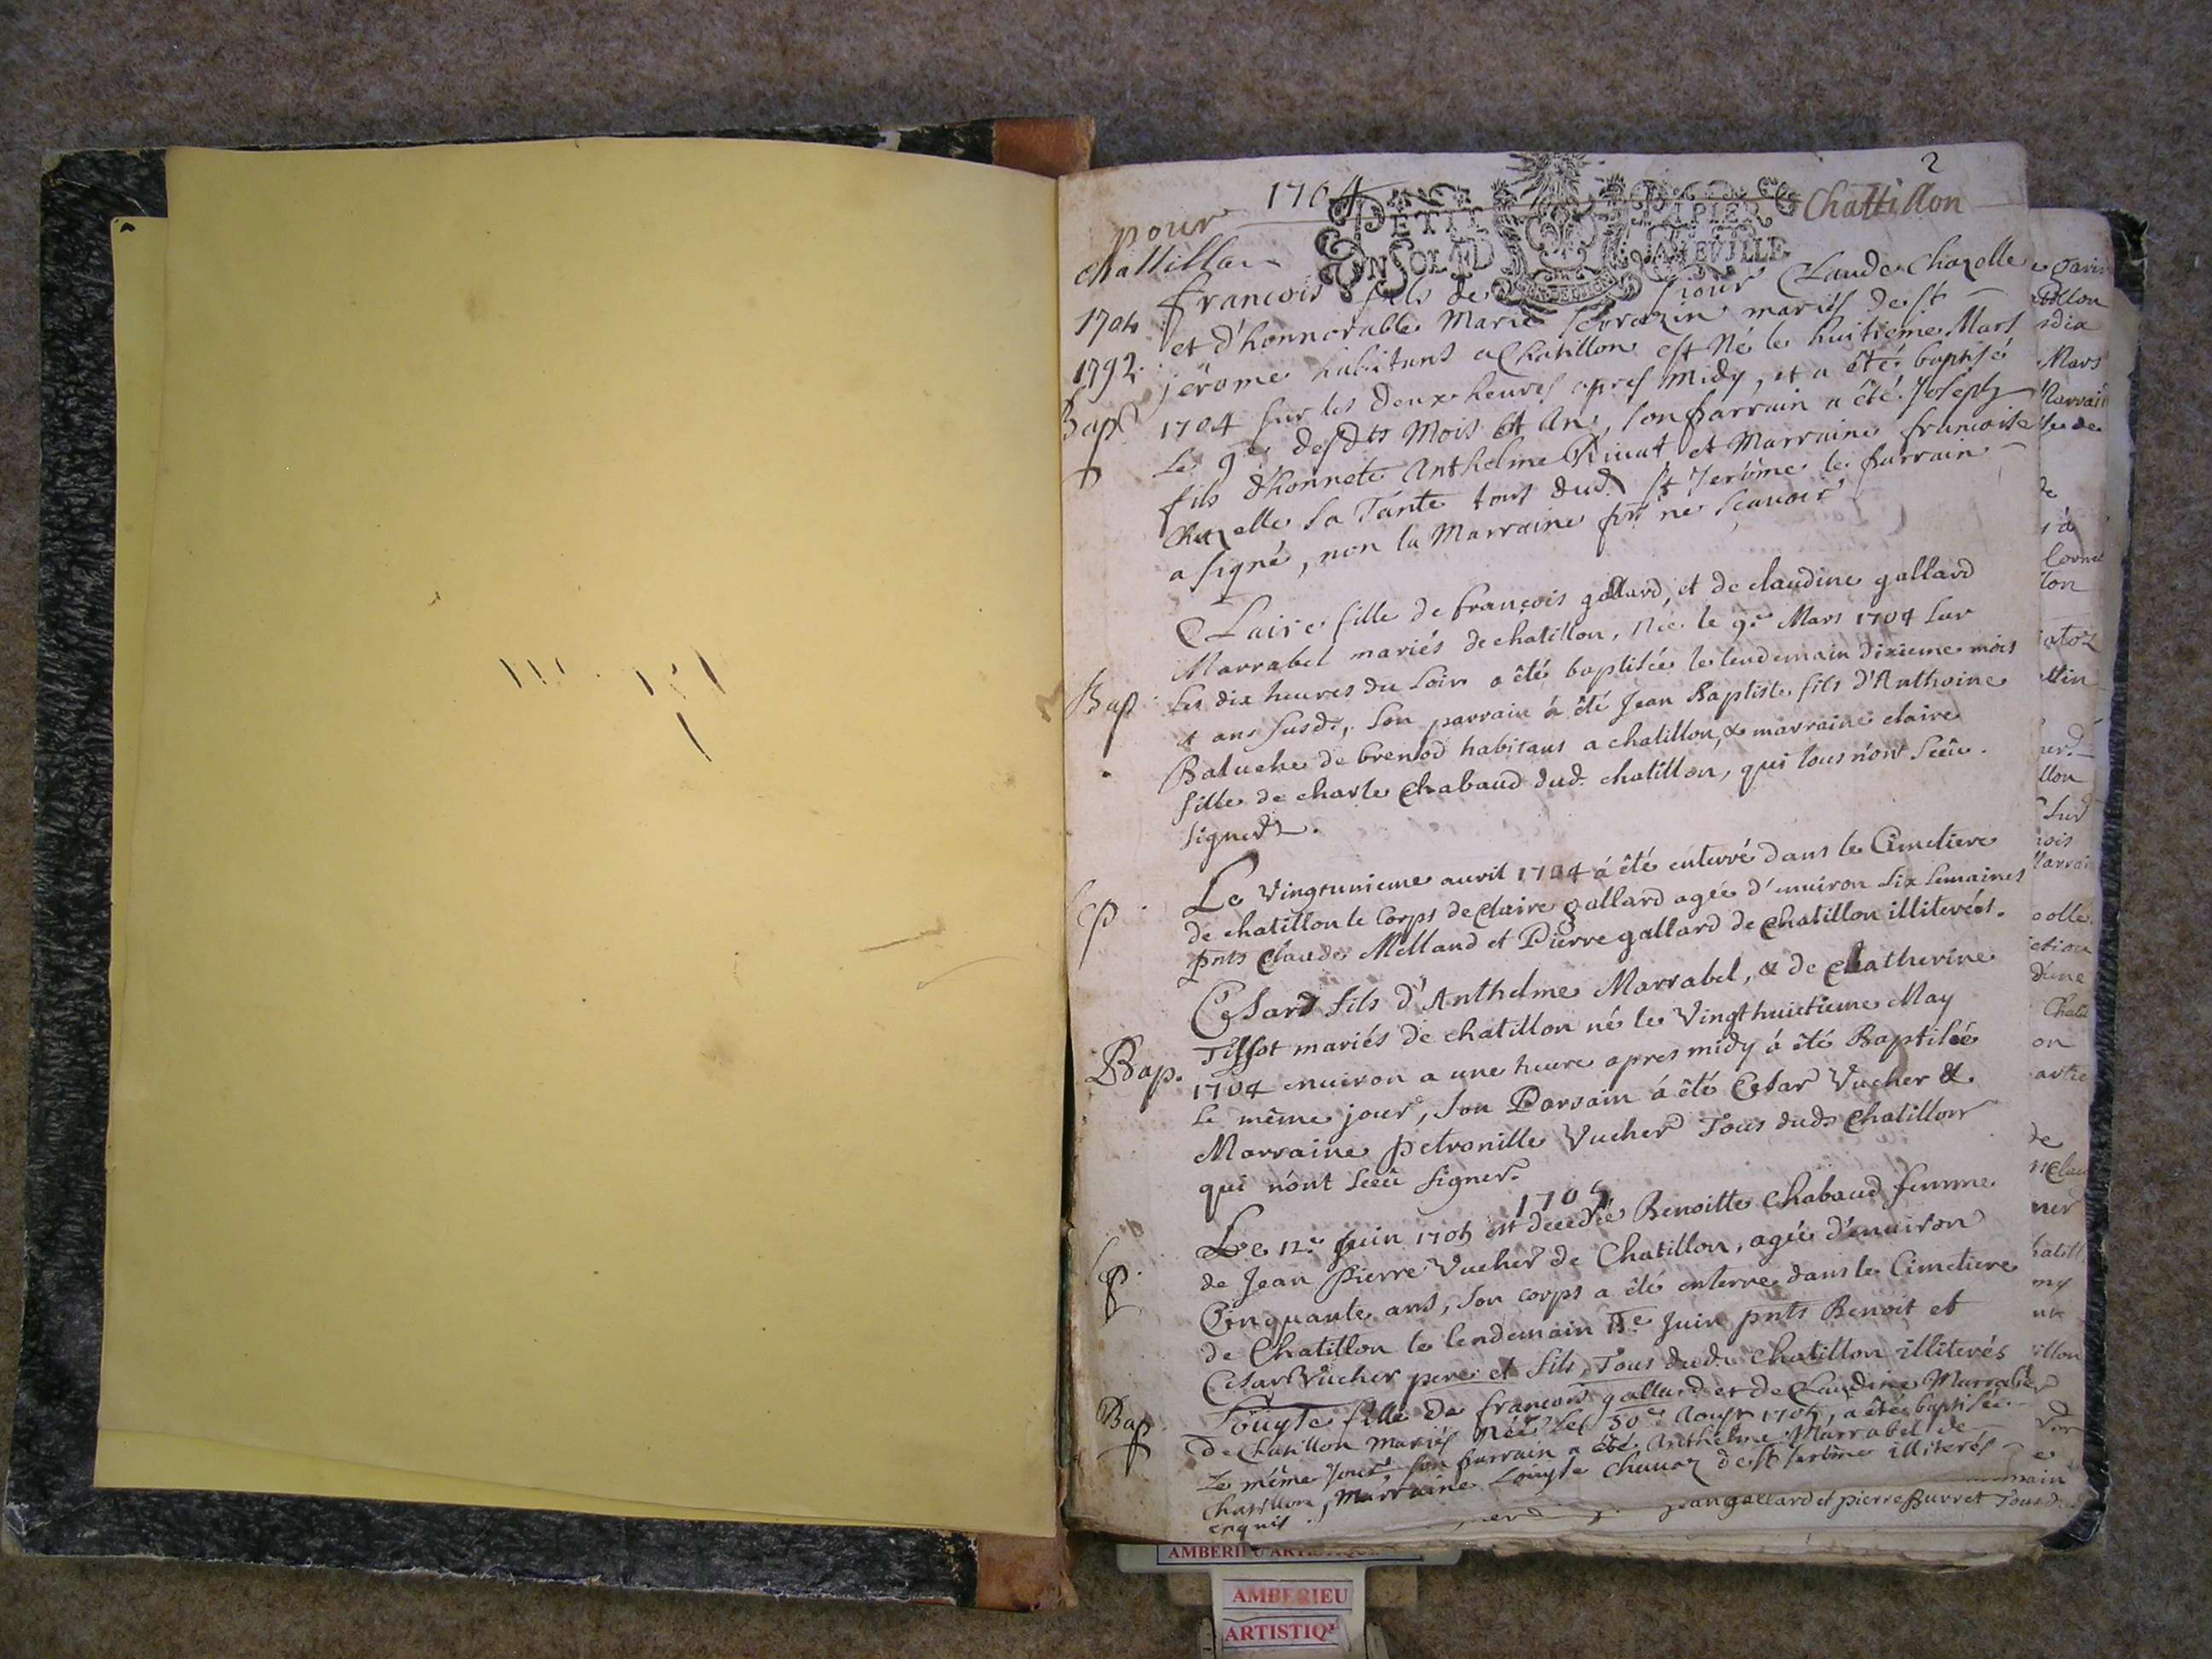 2
1704
Chattillon
pour
chattillon
PETIT PAPIER
UN SOL
1704
1792
françois fils de sieur Claude Chazelle
et d'honnorable Marie Serrazin mariés de St
jérome habitans a Chatillon est Né le huitième Mars
Bap
1704 sur les deux heures apres midy, et a été baptisé
Le 9e desdts Mois et An, son parrain a été Joseph
fils d'honnete Anthelme et Marraine francoise
Chazelle sa Tante tous dud. St Jerôme le parrain
a signé, non la Marraine pr ne sçavoir
Claire fille de françois gallard, et de claudine gallard
Marrabel mariés de chatillon, Née le 9e Mars 1704 sur
Bap
Les dix heures du soir a été baptisée le lendemain dixieme mois
& an susds, son parrain à été Jean Baptiste fils d'Anthoine
Baluche de brenod habitans a chatillon, & marraine claire
fille de charle chabaud dud. chatillon, qui tous n'ont sceü
signer.
Sep
Le Vingtunieme auril 1704 à été enterré dans le Cimetiere
de chatillon le Corps de claire gallard agée d'enuiron six semaines
pnts Claude Melland et Pierre gallard de chatillon illiterés.
Cesard fils d'Anthelme Marrabel, & de Chatherine
Tissot mariés de chatillon né le Vingthuictieme May
Bap.
1704 enuiron a une heure apres midy à été Baptisée
Le même jour, son Parrain à été Cesar Vucher &
Marraine petronille Vucher Tous duds Chatillon
qui n'ont sceü signer.
1705
Sep
Le 12e Juin 1705 est decedée Benoitte Chabaud femme
de Jean Pierre Vucher de Chatillon, agée d'enuiron
Cinquante ans, son corps a été enterré dans le Cimetiere
de Chatillon le lendemain 13e Juin pnts Benoit et
Cesar Vucher pere et fils, Tous dud. Chatillon illiterés
Bap
Loüyse fille de françois gallard et de Claudine Marrabel
de Chatillon Mariés Née le 30e Aoust 1705, a été baptisée
Le même Jour, son parrain a été Anthelme Marrabel de
Chatillon, Marraine Loüyse Chauaz de St Jerôme illiterés
enquis.
jean gallard et pierre Burret Tous d
AMBERIEU ARTISTIQUE
AMBERIEU
ARTISTIQ